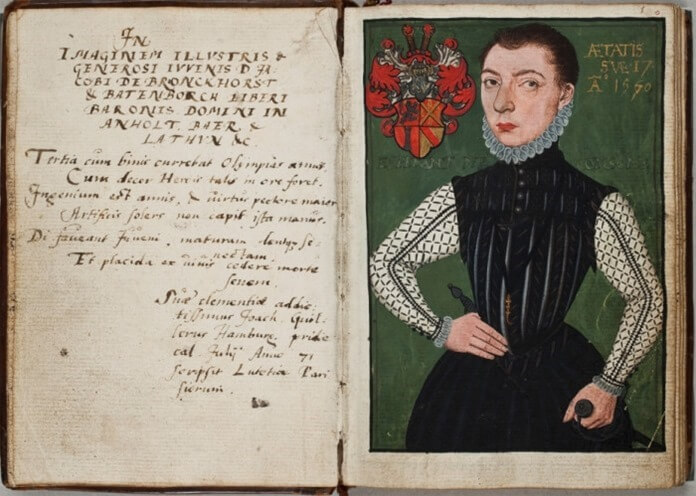 IN
IMAGINEM ILLVSTRIS &
GENEROSI IVVENIS D. IA
COBI DE BRONCKHORST
& BATENBORCH LIBERI
BARONIS DOMINI IN
ANHOLT, BAER, &
LATHVN &c.
Tertia cum binis currebat Olympias annis
Cum decor Herois talis in ore foret.
Ingenium est annis, & virtus pectore maior
Artificis solers non capit ista manus.
Di faveant Iuveni, maturam
Et placida cedere morte
senem.
Suae clementiae addic
tissimus Joach. Guil-
lerus Hamburg. pridie
cal. Julij Anno 71
scripsit Lutetiae Pari
siorum.
ÆTATIS
SVÆ 17
A° 1570